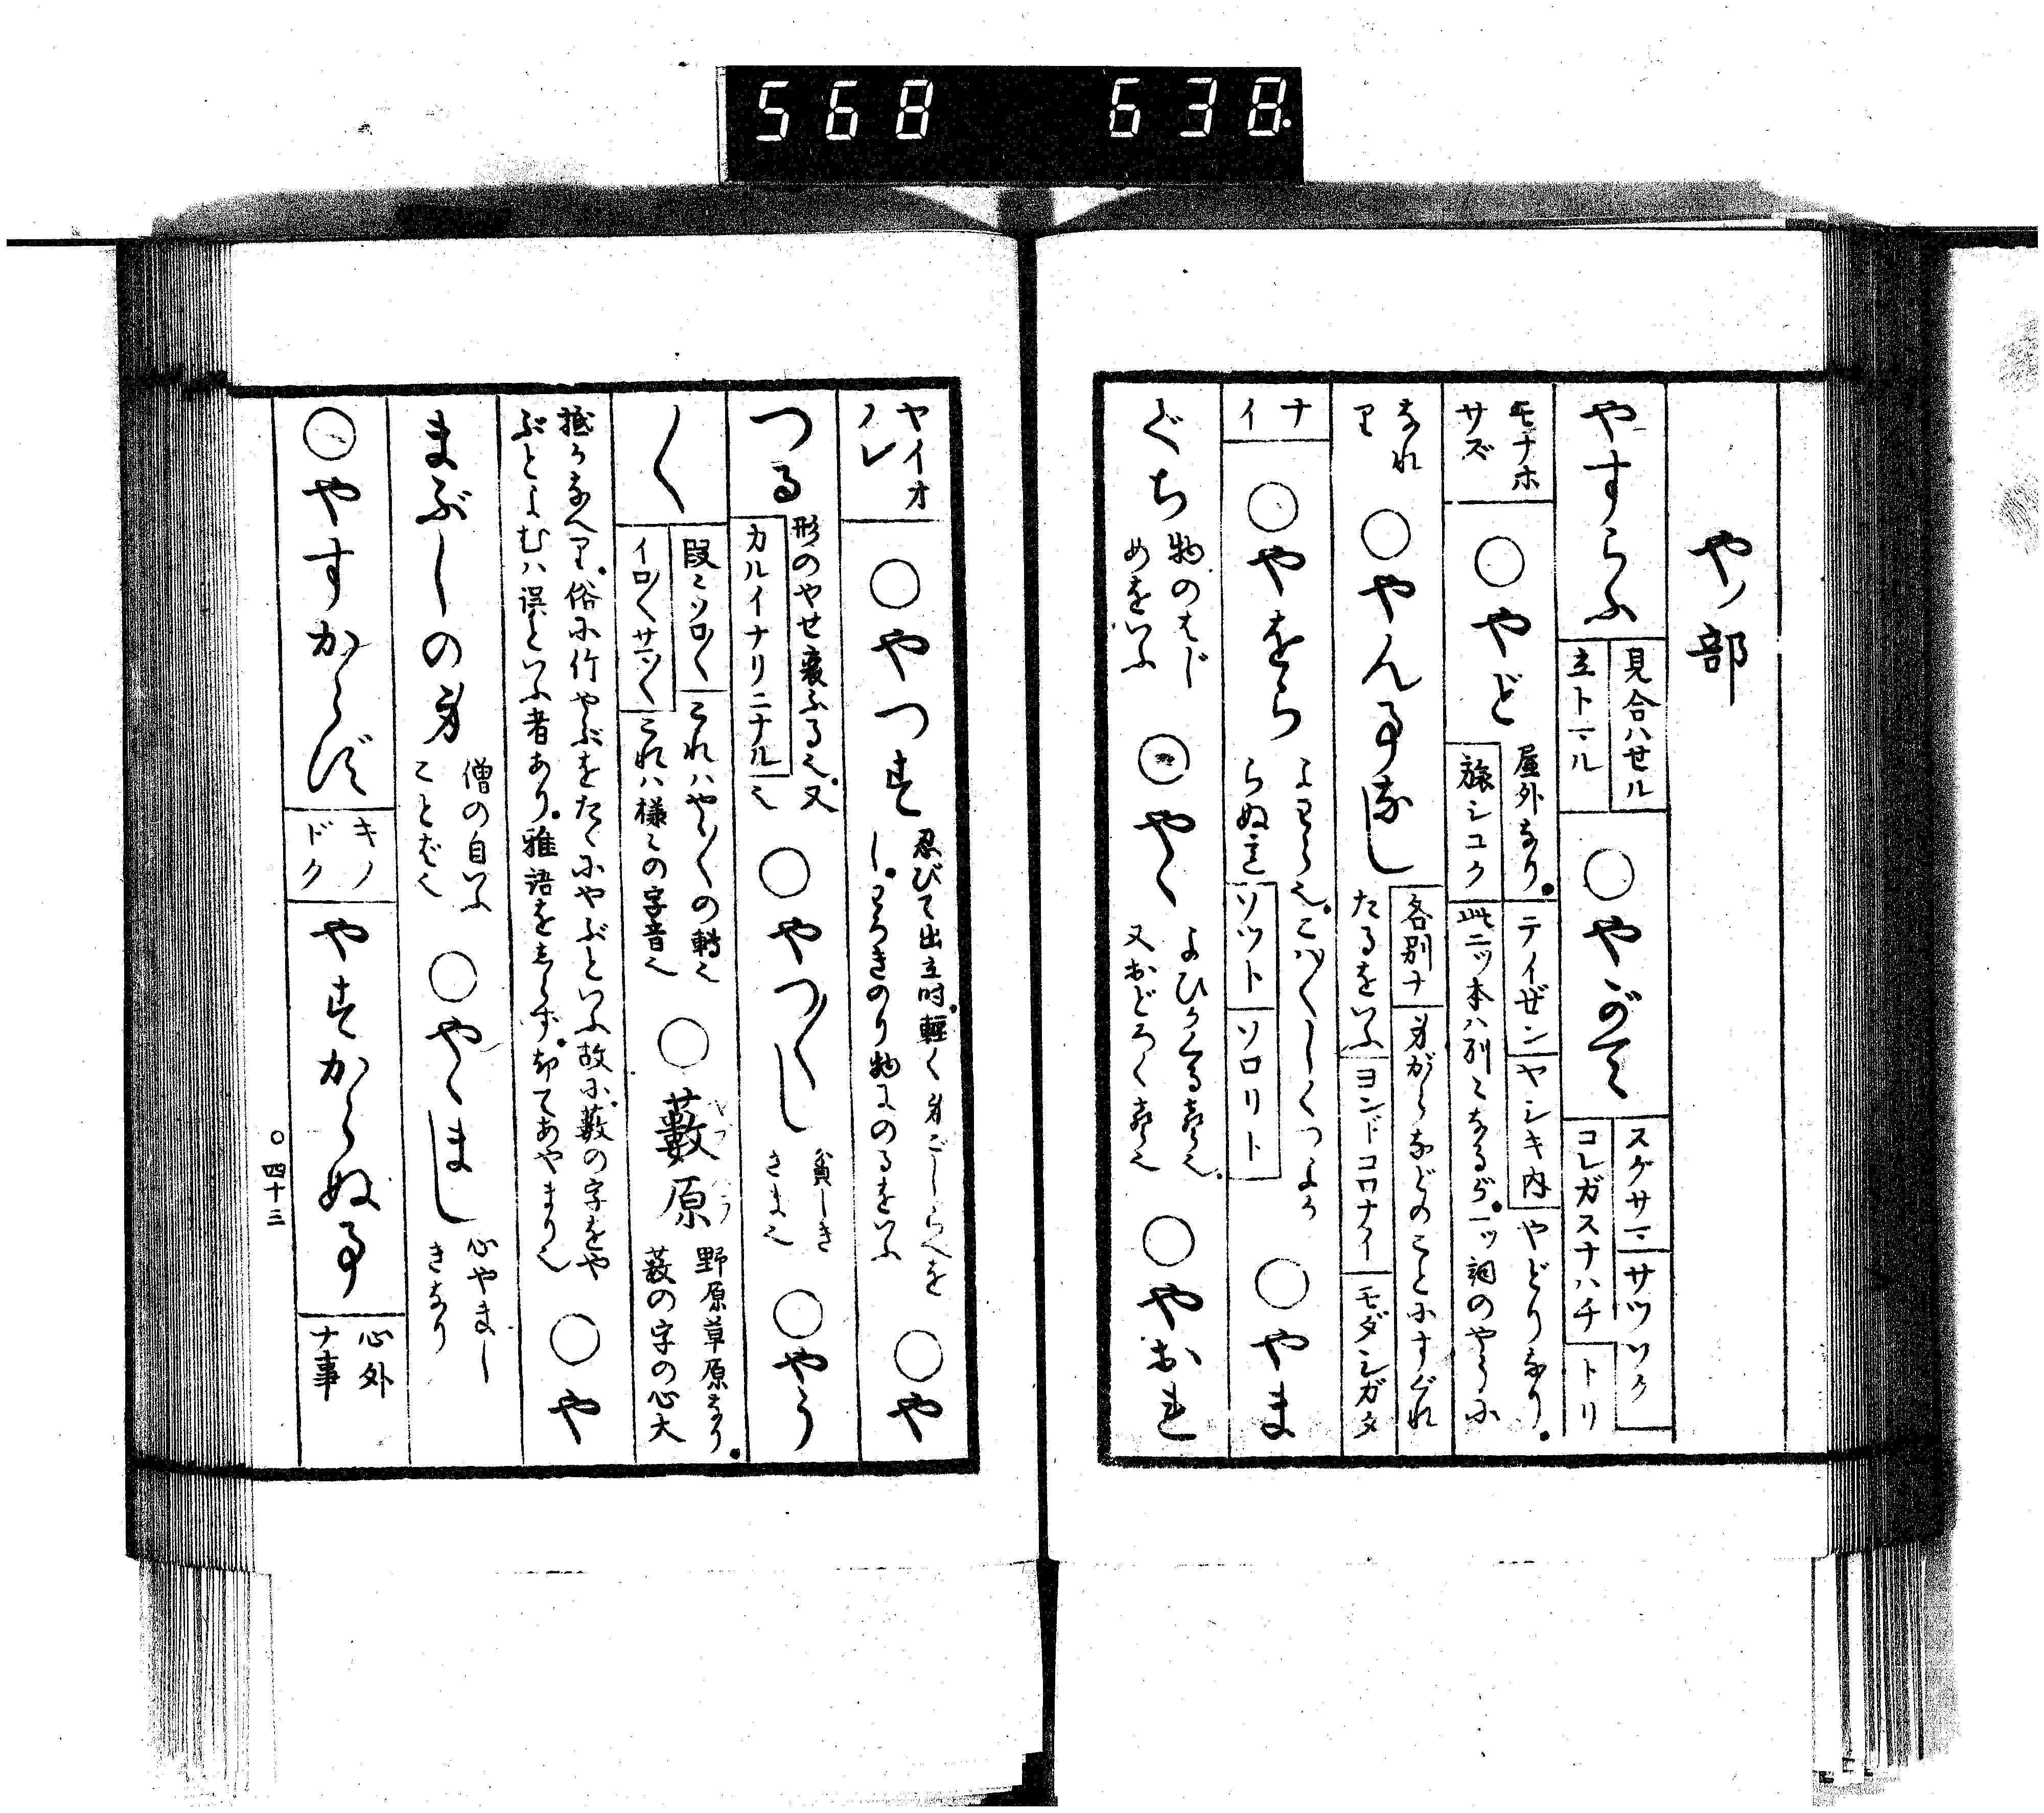 568 638
やノ部
やすらふ 見合ハセル 立トマル ○やがて スグサマ サツソク コレガスナハチ トリ
モナホサズ ○やど 屋外なり。テイゼン ヤシキ内 やどりなり。旅シユク 此二ツ本ハ別々なるが。一ツ詞のやうに
なれり ○やんごとなし 各別ナ 身がらなどのことにすぐれたるをいふ ヨンドコロナイ モダシガタ
ナイ ○やをら よわら也。こハ〴〵しくつよからぬ意 ソツト ソロリト ○やま
ぐち 物のはじめをいふ ○やゝ よびかくる声也。又おどろく声也 ○やおれ
ヤイオノレ ○やつす 忍びて出立時。軽く身ごしらへをし。わろきのり物にのるをいふ ○や
つる 形のやせ衰ふる也。又カルイナリニナル也 ○やつ〳〵し 貧しきさま也 ○やう
〳〵 段々ソロ〳〵 これハやゝ〳〵の轉也 イロ〳〵サマ〴〵 これハ様々の字音也 ○藪原 ヤブハラ 野原草原なり。藪の字の心大
抵かなへり。俗に竹やぶをたゞにやぶといふ故に。藪の字をや
ぶとよむハ誤といふ者あり。雅語をしらず。却てあやまり也 ○や
まぶしの身 僧の自いふことば也 ○やゝまし 心やましきなり
○やすからず キノドク やすからぬ事 心外ナ事
○四十三